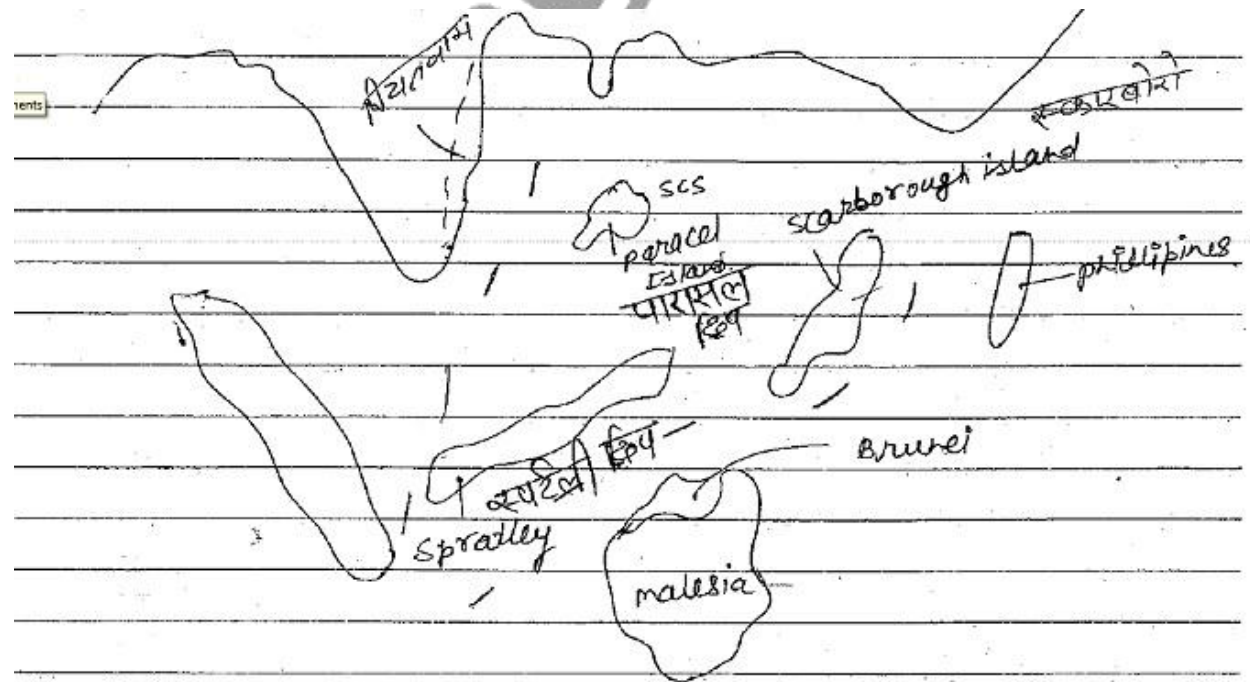 वियतनाम
स्कारबोरो
nents
SCS
scarborough island
paracel
Island
पारासेल
द्विप
phillipines
स्पर्टली द्विप
Brunei
Spratley
malesia